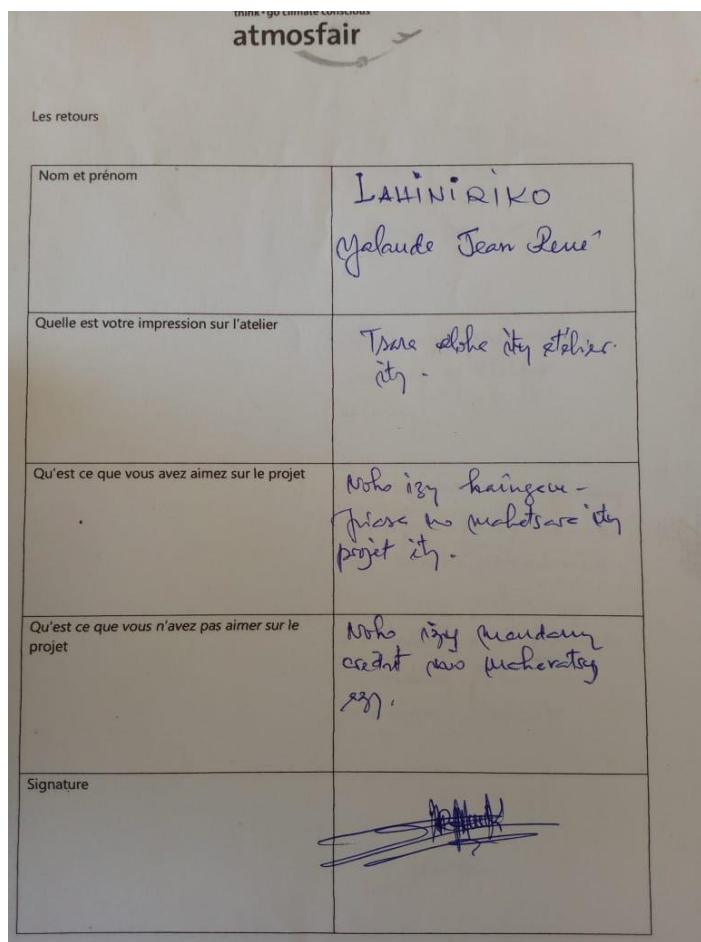 think • go climate conscious
atmosfair
Les retours
Nom et prénom
LAHINIRIKO
Yalaude Jean René
Quelle est votre impression sur l'atelier
Tsara aloha ity atelier
ity.
Qu'est ce que vous avez aimez sur le projet
Noho izy
no mahatsara ity
projet ity.
Qu'est ce que vous n'avez pas aimer sur le
projet
Noho izy mandany
credit
izy.
Signature